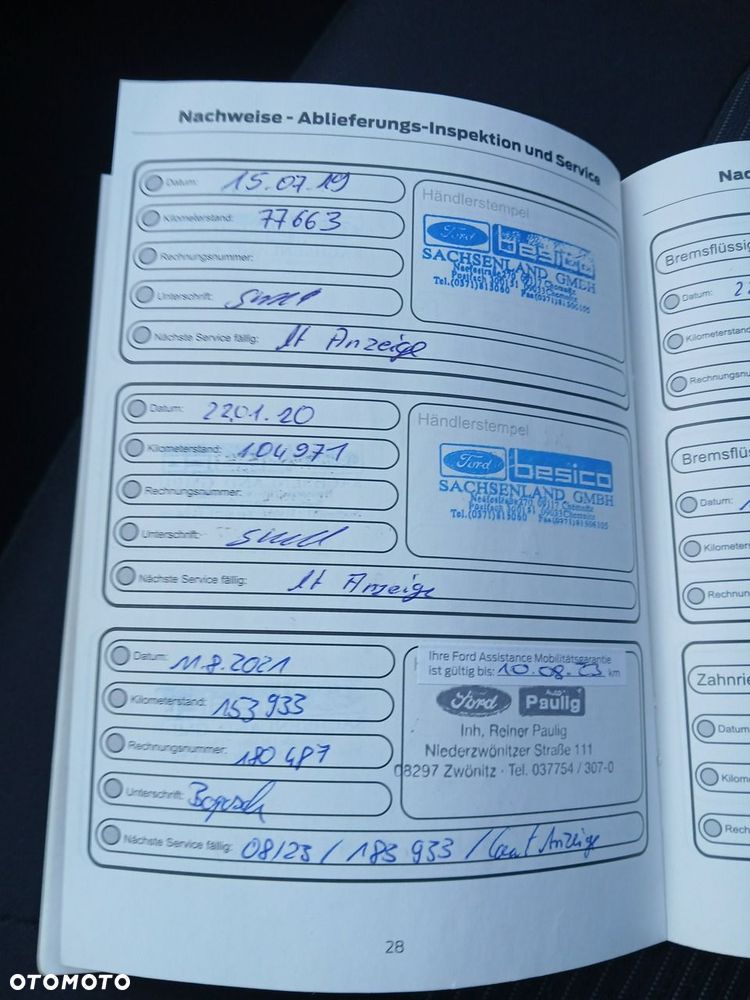 Nachweise - Ablieferungs-Inspektion und Service
Datum: 15.07.19
Kilometerstand: 77663
Rechnungsnummer:
Unterschrift:
Nächste Service fällig: lt Anzeige
Händlerstempel
Ford besico
SACHSENLAND GMBH
Neefestraße 70 09117 Chemnitz
Postfach 300131 09033 Chemnitz
Tel.(0371)815060
Datum: 22.01.20
Kilometerstand: 104971
Rechnungsnummer:
Unterschrift:
Nächste Service fällig: lt Anzeige
Händlerstempel
Ford besico
SACHSENLAND GMBH
Neefestraße 70 09117 Chemnitz
Postfach 300131 09033 Chemnitz
Tel.(0371)815060
Datum: 11.8.2021
Kilometerstand: 153 933
Rechnungsnummer: 180 487
Unterschrift:
Nächste Service fällig: 08/23 / 183 933 / laut Anzeige
Ihre Ford Assistance Mobilitätsgarantie
ist gültig bis: 10.08.23 km
Ford Auto Paulig
Inh. Reiner Paulig
Niederzwönitzer Straße 111
08297 Zwönitz · Tel. 037754 / 307-0
28
Nac
Bremsflüssig
Datum: 22
Kilometerstand
Rechnungsnu
Bremsflüs
Datum:
Kilometer
Rechnung
Zahnrie
Datum
Kilom
Rech
OTOMOTO